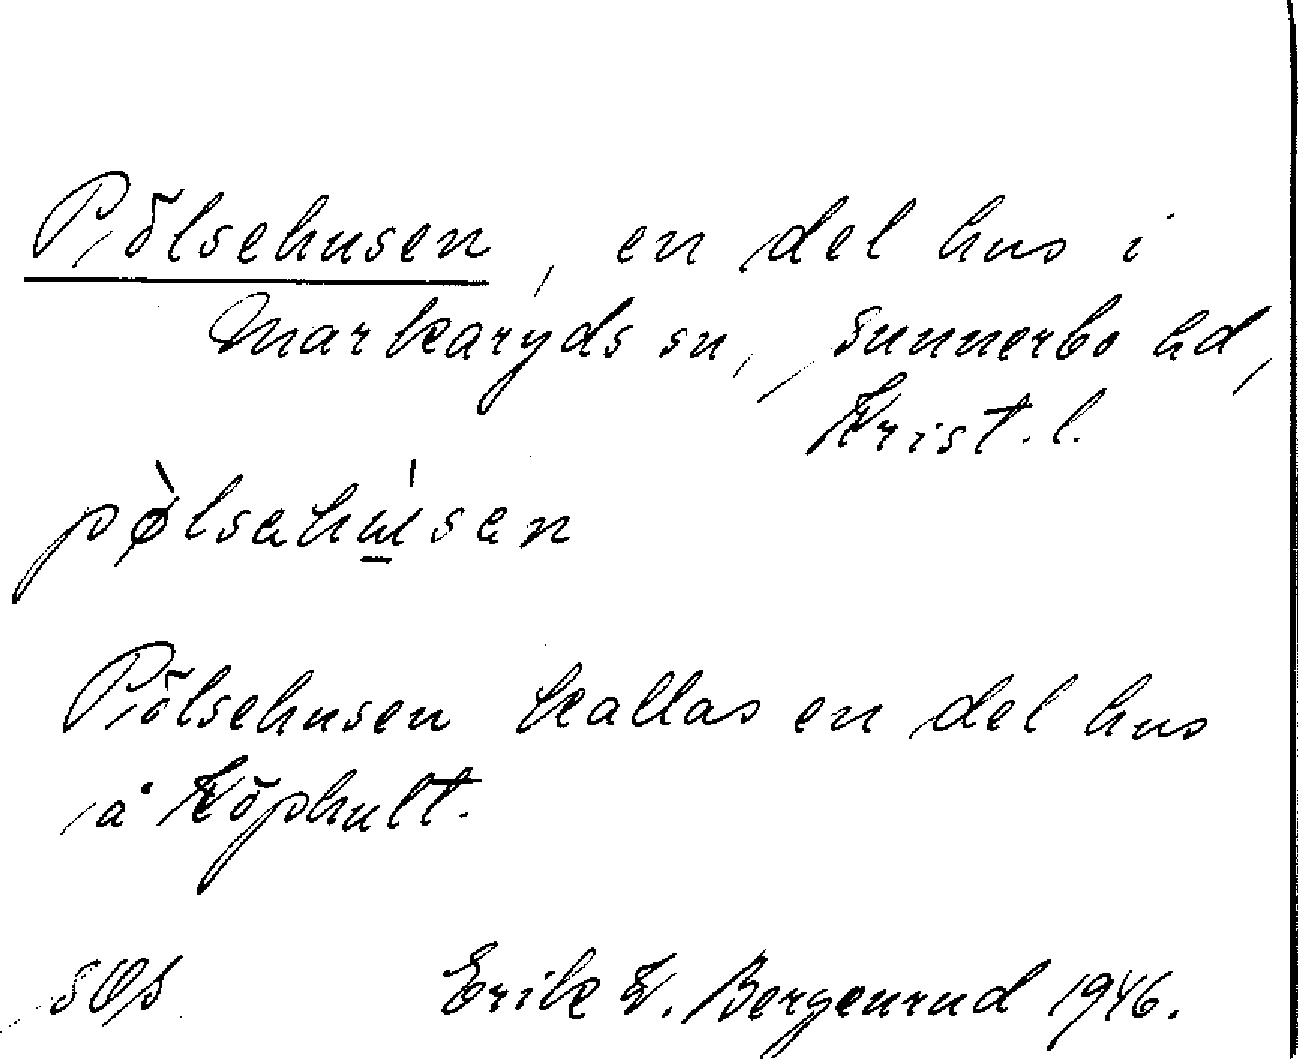 Pölsehusen, en del hus i
Markaryds sn, Sunnerbo hd,
Krist. l.
Pölsehusen kallas en del hus
å Köphult.
Erik K. Bergenrud 1946.